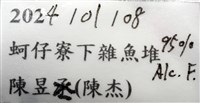 2024/01/08
蚵仔寮下雜魚堆 95%
Alc. F.
陳昱丞(陳杰)